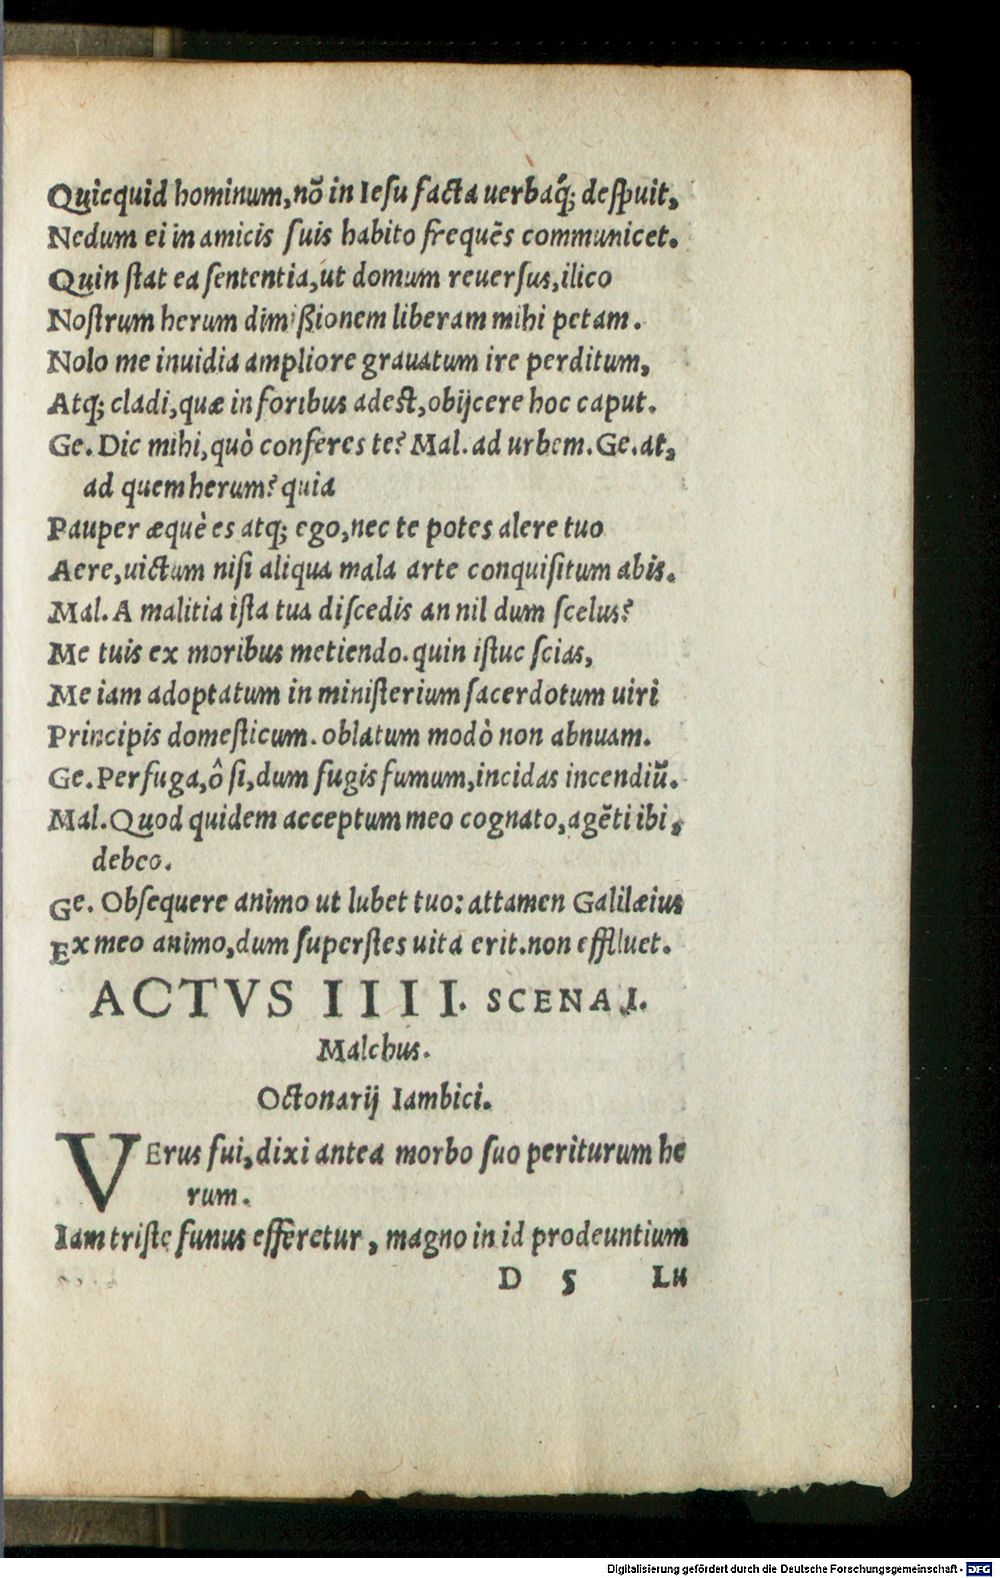 Quicquid hominum,nō in Ieſu facta uerbaq́; deſpuit,
Nedum ei in amicis ſuis habito frequēs communicet.
Quin ſtat ea ſententia,ut domum reuerſus,ilico
Noſtrum herum dimißionem liberam mihi petam.
Nolo me inuidia ampliore grauatum ire perditum,
Atq; cladi,quæ in foribus adest,obijcere hoc caput.
Ge. Dic mihi,quò conferes te? Mal. ad urbem. Ge. at,
ad quem herum? quia
Pauper æquè es atq; ego,nec te potes alere tuo
Aere,uictum niſi aliqua mala arte conquiſitum abis.
Mal. A malitia iſta tua diſcedis an nil dum ſcelus?
Me tuis ex moribus metiendo. quin iſtuc ſcias,
Me iam adoptatum in miniſterium ſacerdotum uiri
Principis domeſticum. oblatum modò non abnuam.
Ge. Perfuga,ô ſi,dum fugis fumum,incidas incendiū.
Mal. Quod quidem acceptum meo cognato,agēti ibi,
debeo.
Ge. Obſequere animo ut lubet tuo: attamen Galilæius
Ex meo animo,dum ſuperſtes uita erit. non effluet.
ACTVS IIII. SCENA I.
Malchus.
Octonarij Iambici.
VErus fui,dixi antea morbo ſuo periturum he
rum.
Iam triſte funus efferetur, magno in id prodeuntium
D 5 Lu
Digitalisierung gefördert durch die Deutsche Forschungsgemeinschaft - DFG